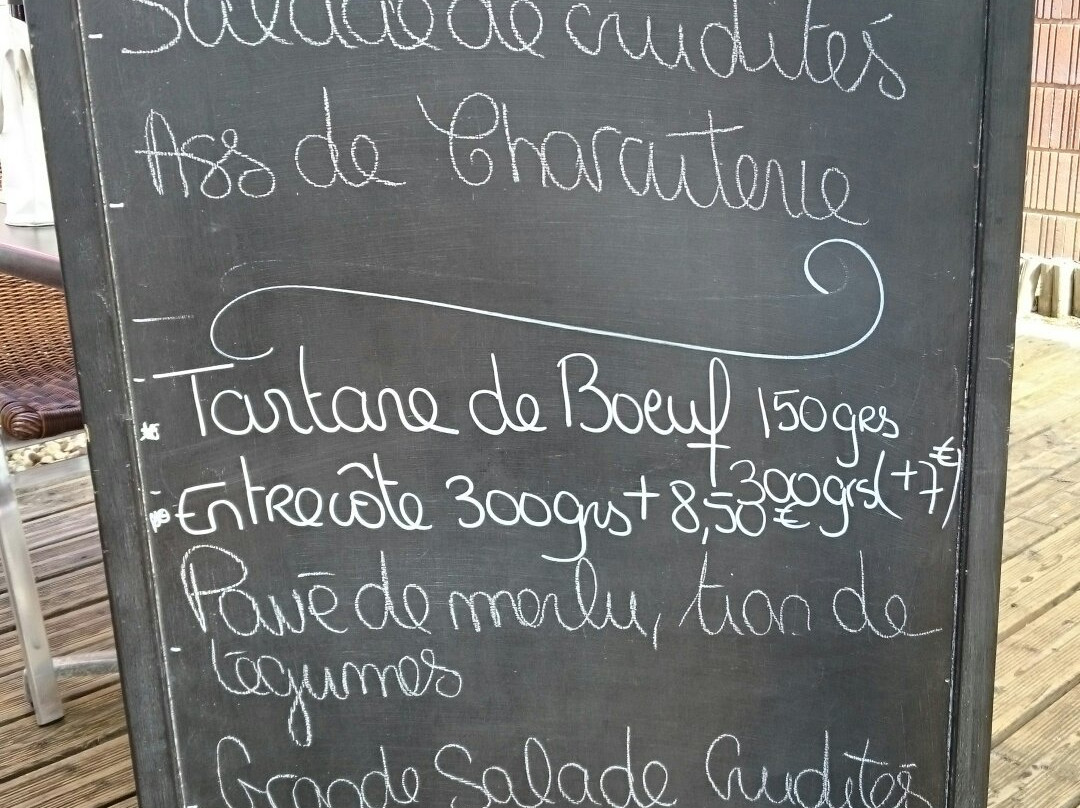 Salade de crudités
Ass de Charcuterie
Tartare de Boeuf 150grs
300grs(+7€)
Entrecôte 300grs + 8,50€
Pavé de merlu, tian de
légumes
Grande Salade Crudités